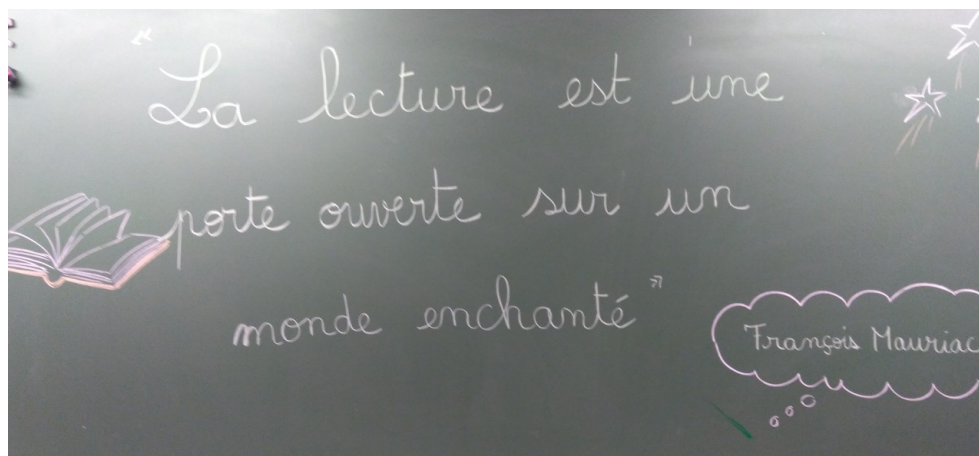 « La lecture est une
porte ouverte sur un
monde enchanté »
François Mauriac